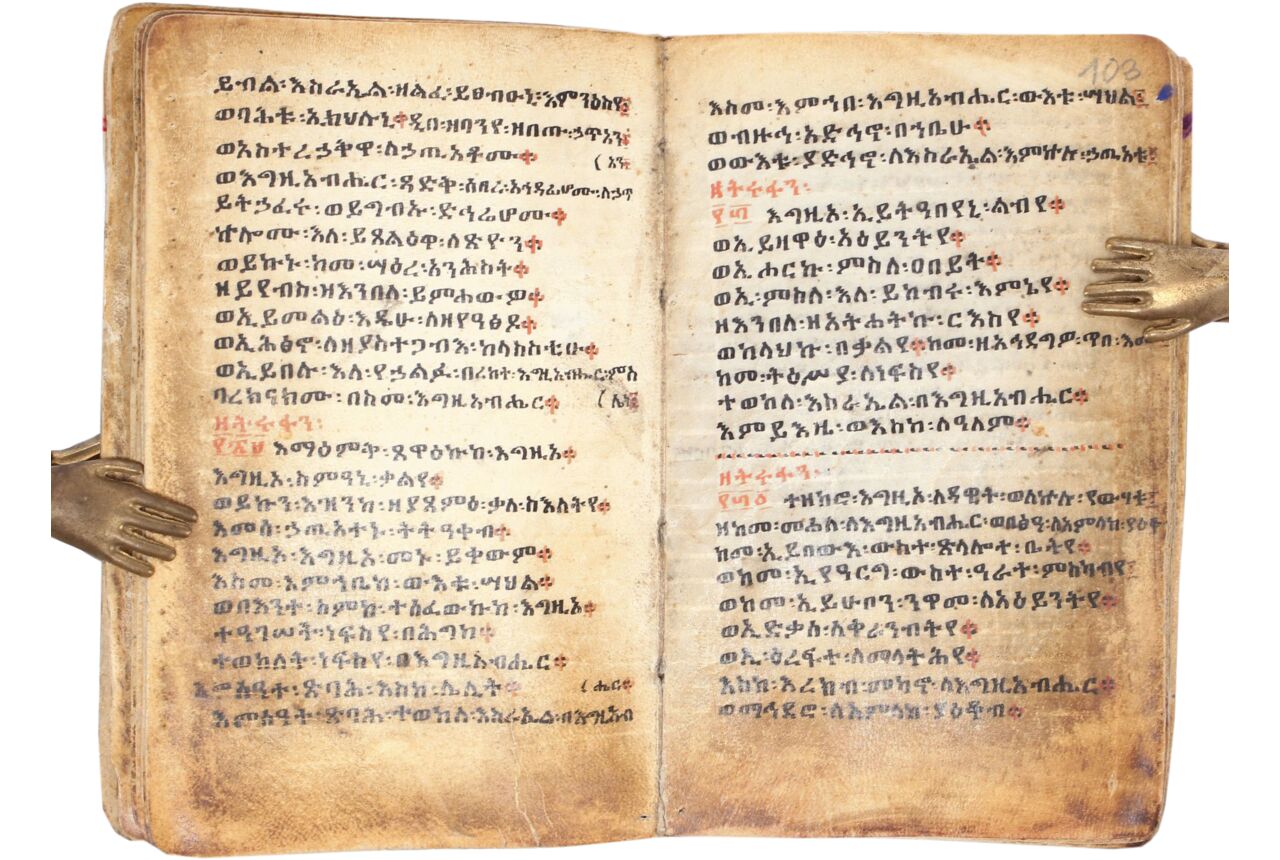 ይብል፡እስራኤል፡ዘልፈ፡ይፀብዑኒ፡እምንዕስየ፤
ወባሕቱ፡ኢክህሉኒ።ዲበ፡ዘባንየ፡ዘበጡ፡ኃጥአን፤
ወአስተረኃቅዋ፡ለኃጢአቶሙ። (አን
ወእግዚአብሔር፡ጻድቅ፡ሰበረ፡አኅዳሪሆሙ፡ለኃጥ
ይትኃፈሩ፡ወይግብኡ፡ድኅሬሆሙ።
ኵሎሙ፡እለ፡ይጸልዕዋ፡ለጽዮን።
ወይኩኑ፡ከመ፡ሣዕረ፡አንሕስት።
ዘይየብስ፡ዘእንበለ፡ይምሐው።
ወኢይመልዕ፡እዴሁ፡ለዘየዓፅዶ።
ወኢሕፅኖ፡ለዘያስተጋብእ፡ከላስስቲሁ።
ወኢይበሉ፡እለ፡የኃልፉ፡በረከተ፡እግዚአብሔር፡ምስ
ባረክናክሙ፡በስመ፡እግዚአብሔር። (ሌክ፤
ዘትሩፋን፡
እማዕምቅ፡ጸዋዕኩከ፡እግዚኦ።
እግዚኦ፡ስምዓኒ፡ቃልየ።
ወይኩን፡እዝንከ፡ዘያጸምዕ፡ቃለ፡ስእለትየ።
እመሰ፡ኃጢአተኑ፡ትትዓቀብ።
እግዚኦ፡እግዚኦ፡መኑ፡ይቀውም።
እስመ፡እምኀቤከ፡ውእቱ፡ሣህል።
ወበእንተ፡ስምከ፡ተሰፈውኩከ፡እግዚኦ።
ተዓገሠት፡ነፍስየ፡በሕግከ።
ተወከለት፡ነፍስየ፡በእግዚአብሔር።
እምሰዓተ፡ጽባሕ፡እስከ፡ሌሊት። (ሔር።
እምሰዓተ፡ጽባሕ፡ተወከለ፡እስራኤል፡በእግዚአብ
103
እስመ፡እምኀበ፡እግዚአብሔር፡ውእቱ፡ሣህል፤
ወብዙኅ፡አድኅኖ፡በኀቤሁ።
ወውእቱ፡ያድኅኖ፡ለእስራኤል፡እምኵሉ፡ኃጢአቱ፤
ዘትሩፋን፡
፻፴ እግዚኦ፡ኢይትዓበየኒ፡ልብየ።
ወኢይዘዋዕ፡አዕይንትየ።
ወኢሖርኩ፡ምስለ፡ዐበይት።
ወኢ፡ምስለ፡እለ፡ይከብሩ፡እምኔየ።
ዘእንበለ፡ዘአትሐትኩ፡ርእስየ።
ወከላህኩ፡በቃልየ።ከመ፡ዘአኅደግዎ፡ጥበ፡እሙ
ከመ፡ትዕሥያ፡ለነፍስየ።
ተወከለ፡እስራኤል፡በእግዚአብሔር።
እምይእዜ፡ወእስከ፡ለዓለም።
ዘትሩፋን፡
፻፴፩ ተዘከሮ፡እግዚኦ፡ለዳዊት፡ወለኵሉ፡የውሃቱ፤
ዘከመ፡መሐለ፡ለእግዚአብሔር፡ወበፅዓ፡ለአምላከ፡ያዕቆ
ከመ፡ኢይበውእ፡ውስተ፡ጽላሎተ፡ቤትየ።
ወከመ፡ኢየዓርግ፡ውስተ፡ዓራተ፡ምስካብየ፤
ወከመ፡ኢይሁቦን፡ንዋመ፡ለአዕይንትየ።
ወኢድቃስ፡ለቀራንብትየ።
ወኢ፡ዕረፍተ፡ለመላትሕየ።
እስከ፡እረክብ፡መካኖ፡ለእግዚአብሔር።
ወማኅደሮ፡ለአምላከ፡ያዕቆብ።